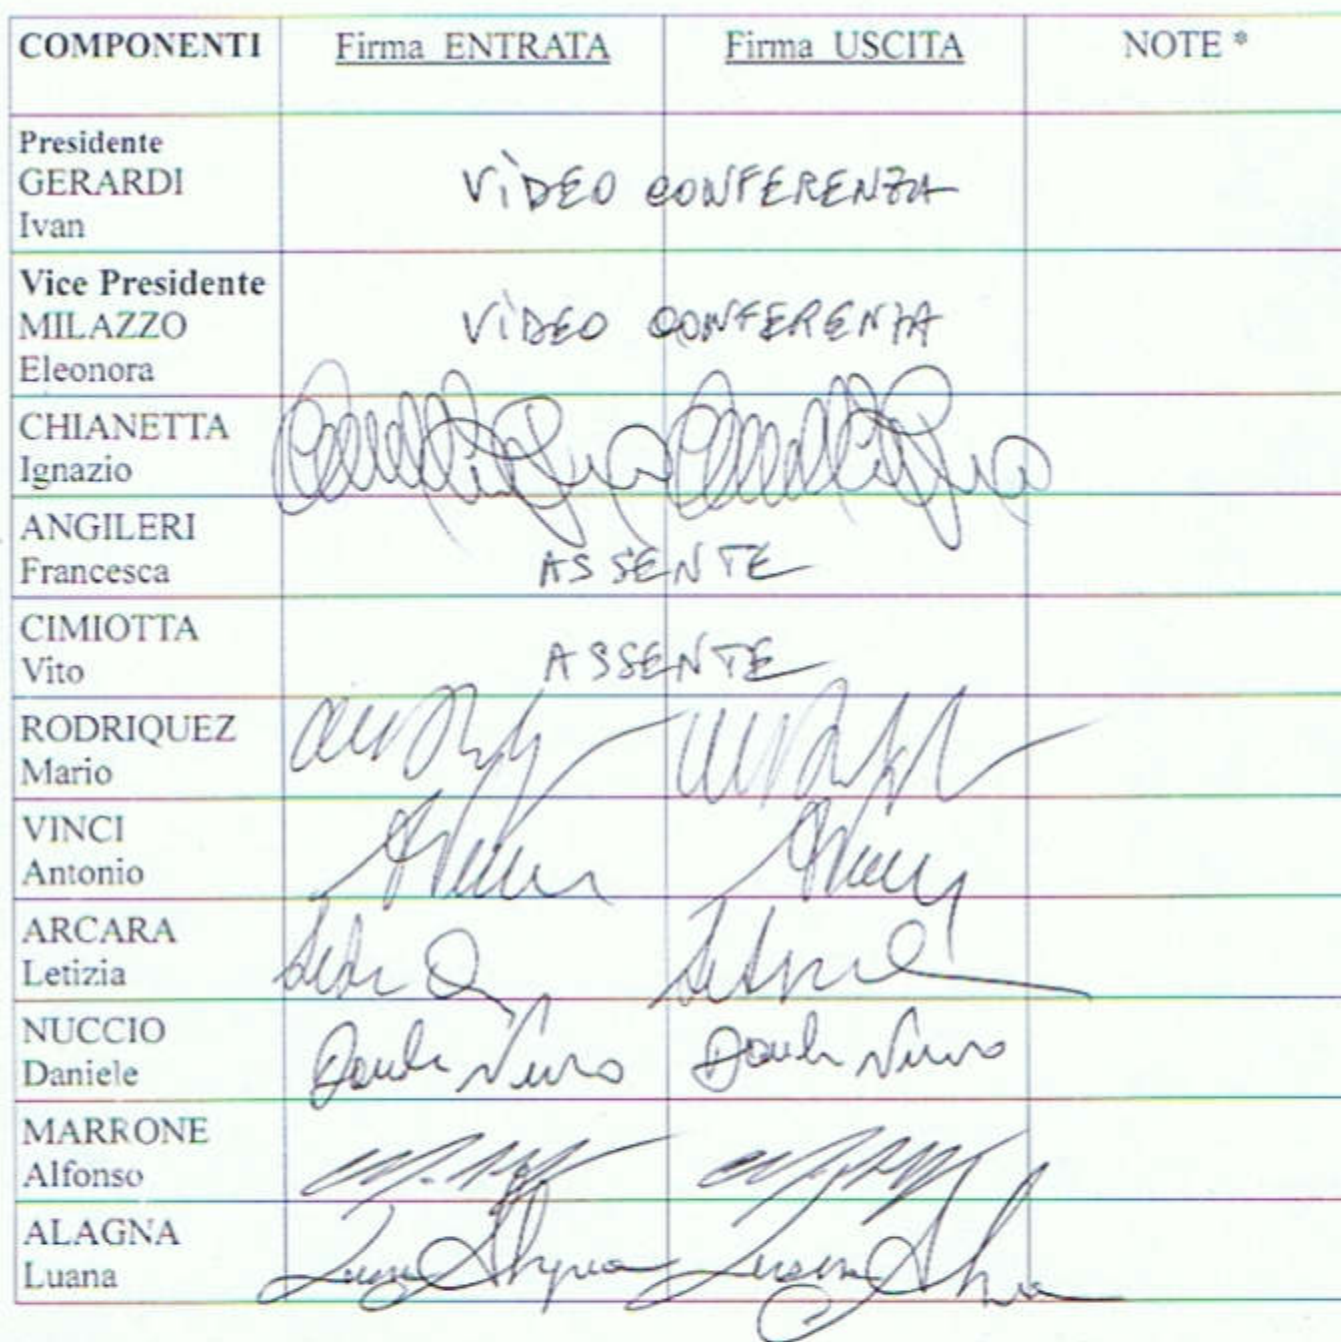 COMPONENTI Firma ENTRATA Firma USCITA NOTE *
Presidente
GERARDI
Ivan
VIDEO CONFERENZA
Vice Presidente
MILAZZO
Eleonora
VIDEO CONFERENZA
CHIANETTA
Ignazio
ANGILERI
Francesca
ASSENTE
CIMIOTTA
Vito
ASSENTE
RODRIQUEZ
Mario
VINCI
Antonio
ARCARA
Letizia
NUCCIO
Daniele
MARRONE
Alfonso
ALAGNA
Luana